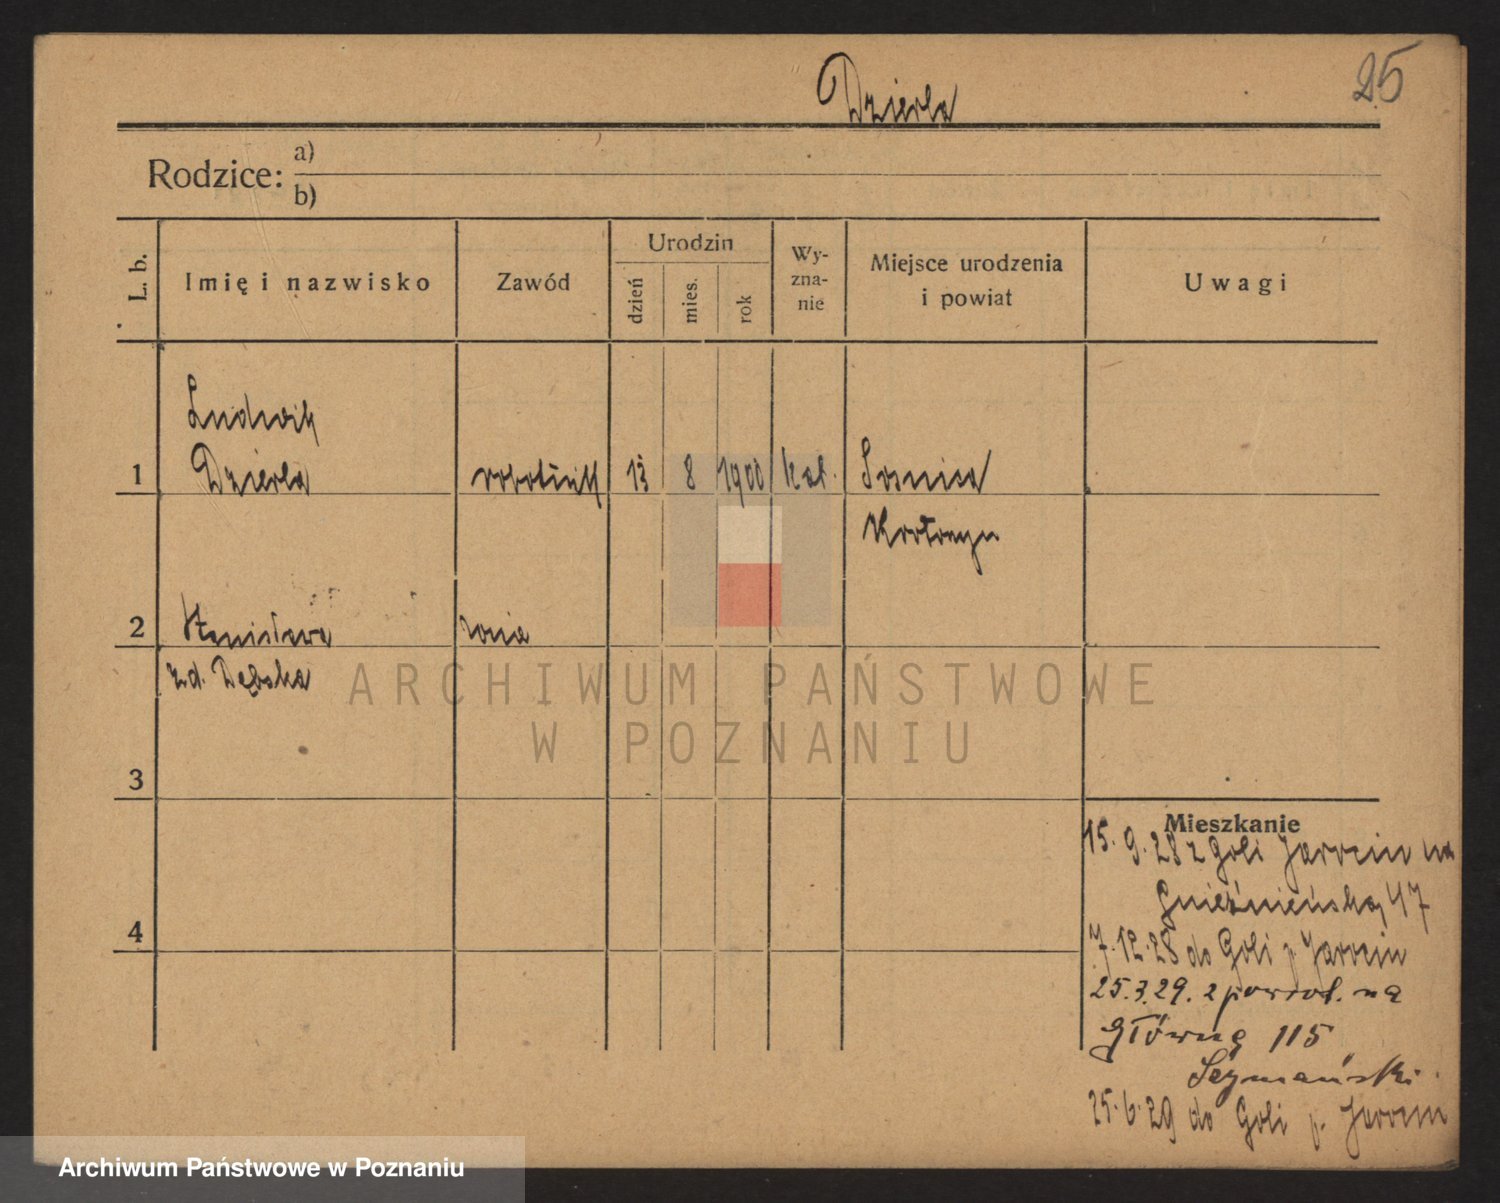 Dzierla
25
Rodzice: a)
b)
L. b.
Imię i nazwisko
Zawód
Urodzin
dzień
mies.
rok
Wy-
zna-
nie
Miejsce urodzenia
i powiat
Uwagi
Ludwik
1 Dzierla robotnik 13 8 1900 kat. Sośnica
Krotoszyn
2 Stanisława żona
zd. Dębska
3
4
Mieszkanie
15. 9. 28 z Goli Jarocin na
Gnieźnieńską 47
7. 12. 28 do Goli p. Jarocin
25. 3. 29. z powrot. na
Główną 115
Szymański.
25. 6. 29 do Goli p. Jarocin
ARCHIWUM PAŃSTWOWE
W POZNANIU
Archiwum Państwowe w Poznaniu